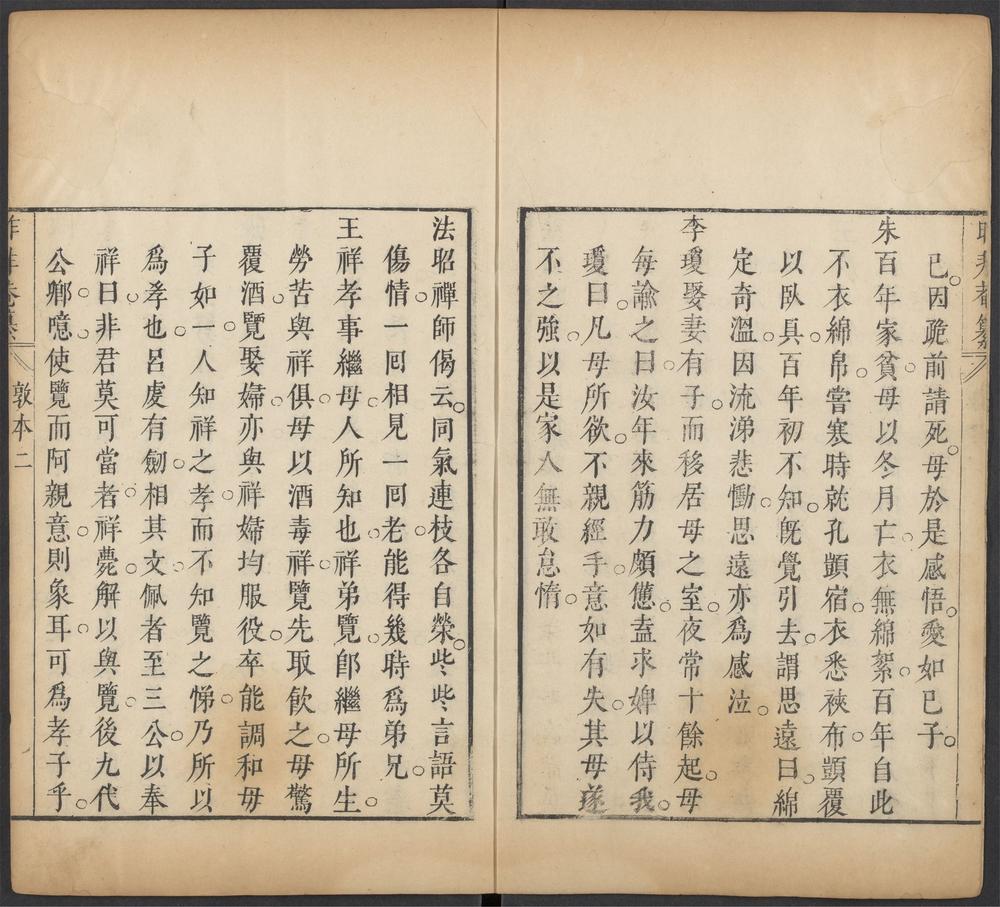 己。因跪前請死。母於是感悟。愛如已子。
朱百年家貧。母以冬月亡。衣無綿絮。百年自此
不衣綿帛。嘗寒時就孔顗宿。衣悉裌布。顗覆
以臥具。百年初不知。旣覺引去。謂思遠曰。綿
定奇溫。因流涕悲慟。思遠亦爲感泣。
李瓊娶妻有子。而移居母之室。夜常十餘起。母
每諭之曰。汝年來筋力頗憊。盍求婢以侍我。
瓊曰。凡母所欲。不親經手。意如有失。其母遂
不之強。以是家人無敢怠惰。
敦本 二
法昭禪師偈云。同氣連枝各自榮。些些言語莫
傷情。一回相見一回老。能得幾時爲弟兄。
王祥孝事繼母。人所知也。祥弟覽。卽繼母所生。
勞苦與祥俱。母以酒毒祥。覽先取飲之。母驚
覆酒。覽娶婦。亦與祥婦均服役。卒能調和母
子如一。人知祥之孝。而不知覽之悌。乃所以
爲孝也。呂虔有劒。相其文。佩者至三公。以奉
祥曰。非君莫可當者。祥薨。解以與覽。後九代
公卿。噫。使覽而阿親意。則象耳。可爲孝子乎。